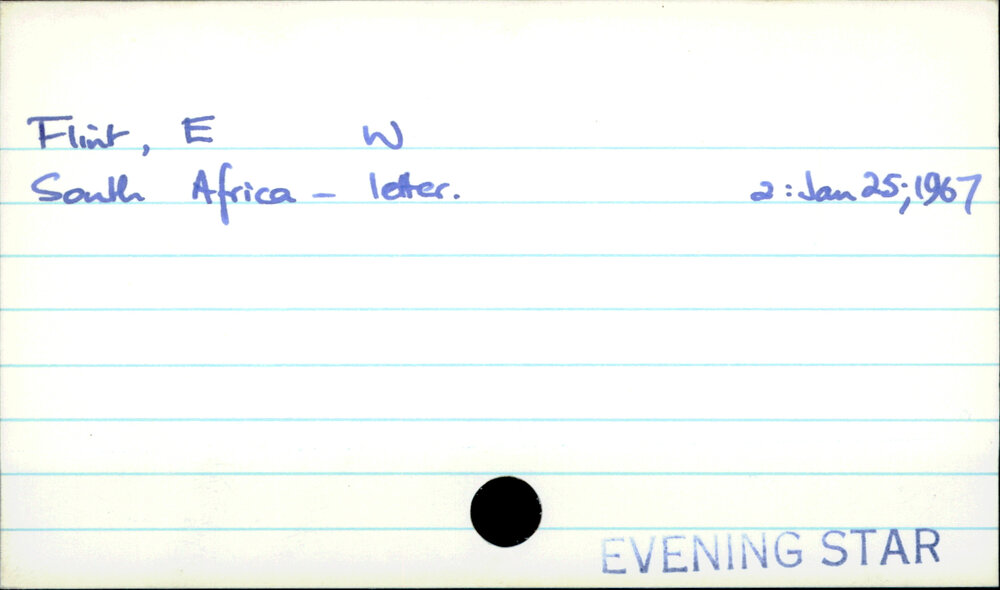 Flint, E W
South Africa - letter. 2: Jan 25; 1967
EVENING STAR